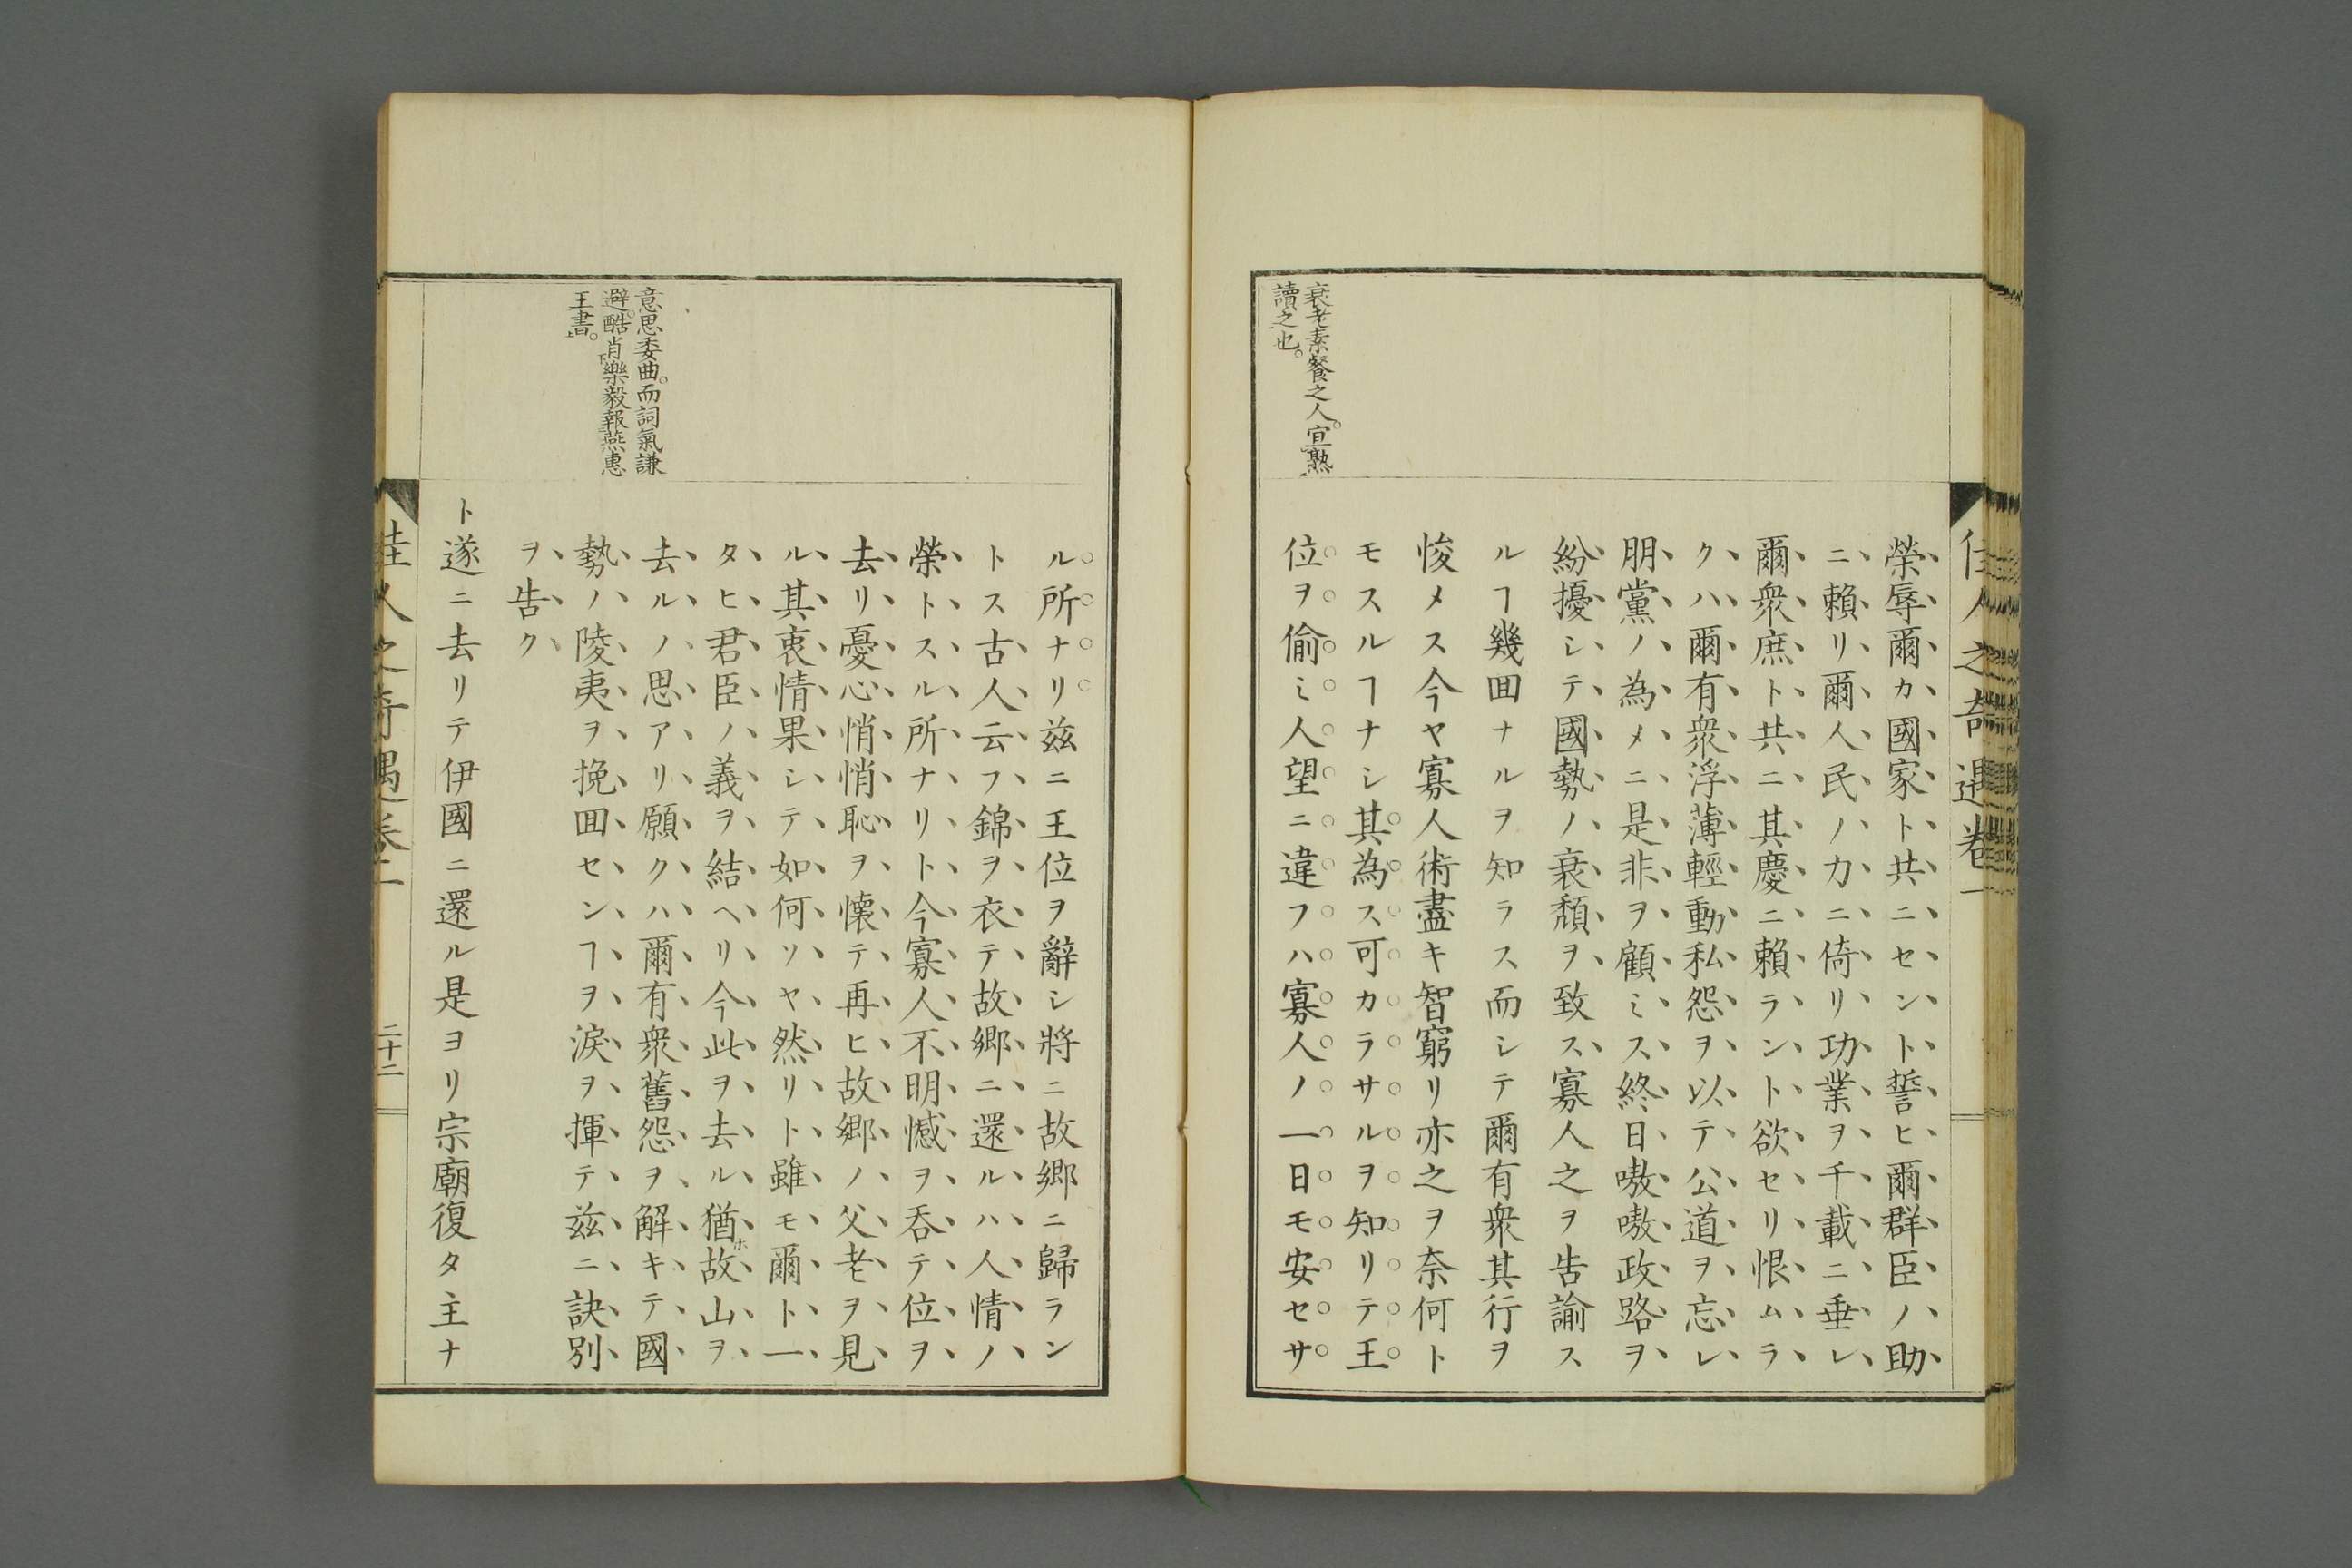 佳人之奇遇卷一
榮辱爾カ國家ト共ニセント誓ヒ爾群臣ノ助
ニ賴リ爾人民ノ力ニ倚リ功業ヲ千載ニ垂レ
爾衆庶ト共ニ其慶ニ賴ラント欲セリ恨ムラ
クハ爾有衆浮薄輕動私怨ヲ以テ公道ヲ忘レ
朋黨ノ為メニ是非ヲ顧ミス終日嗷嗷政路ヲ
紛擾シテ國勢ノ衰頽ヲ致ス寡人之ヲ告諭ス
ルヿ幾囬ナルヲ知ラス而シテ爾有衆其行ヲ
悛メス今ヤ寡人術盡キ智窮リ亦之ヲ奈何ト
モスルヿナシ其為ス可カラサルヲ知リテ王
位ヲ偷ミ人望ニ違フハ寡人ノ一日モ安セサ
衰老素餐之人。宜熟
讀之也。
ル所ナリ茲ニ王位ヲ辭シ將ニ故鄉ニ歸ラン
トス古人云フ錦ヲ衣テ故鄉ニ還ルハ人情ノ
榮トスル所ナリト今寡人不明憾ヲ吞テ位ヲ
去リ憂心悄悄恥ヲ懷テ再ヒ故鄉ノ父老ヲ見
ル其衷情果シテ如何ソヤ然リト雖モ爾ト一
タヒ君臣ノ義ヲ結ヘリ今此ヲ去ル猶ホ故山ヲ
去ルノ思アリ願クハ爾有衆舊怨ヲ解キテ國
勢ノ陵夷ヲ挽囬センヿヲ淚ヲ揮テ茲ニ訣別
ヲ告ク
ト遂ニ去リテ伊國ニ還ル是ヨリ宗廟復タ主ナ
意思委曲。而詞氣謙
避。酷肖樂毅報燕惠
王書。
佳人之奇遇卷二
二十二